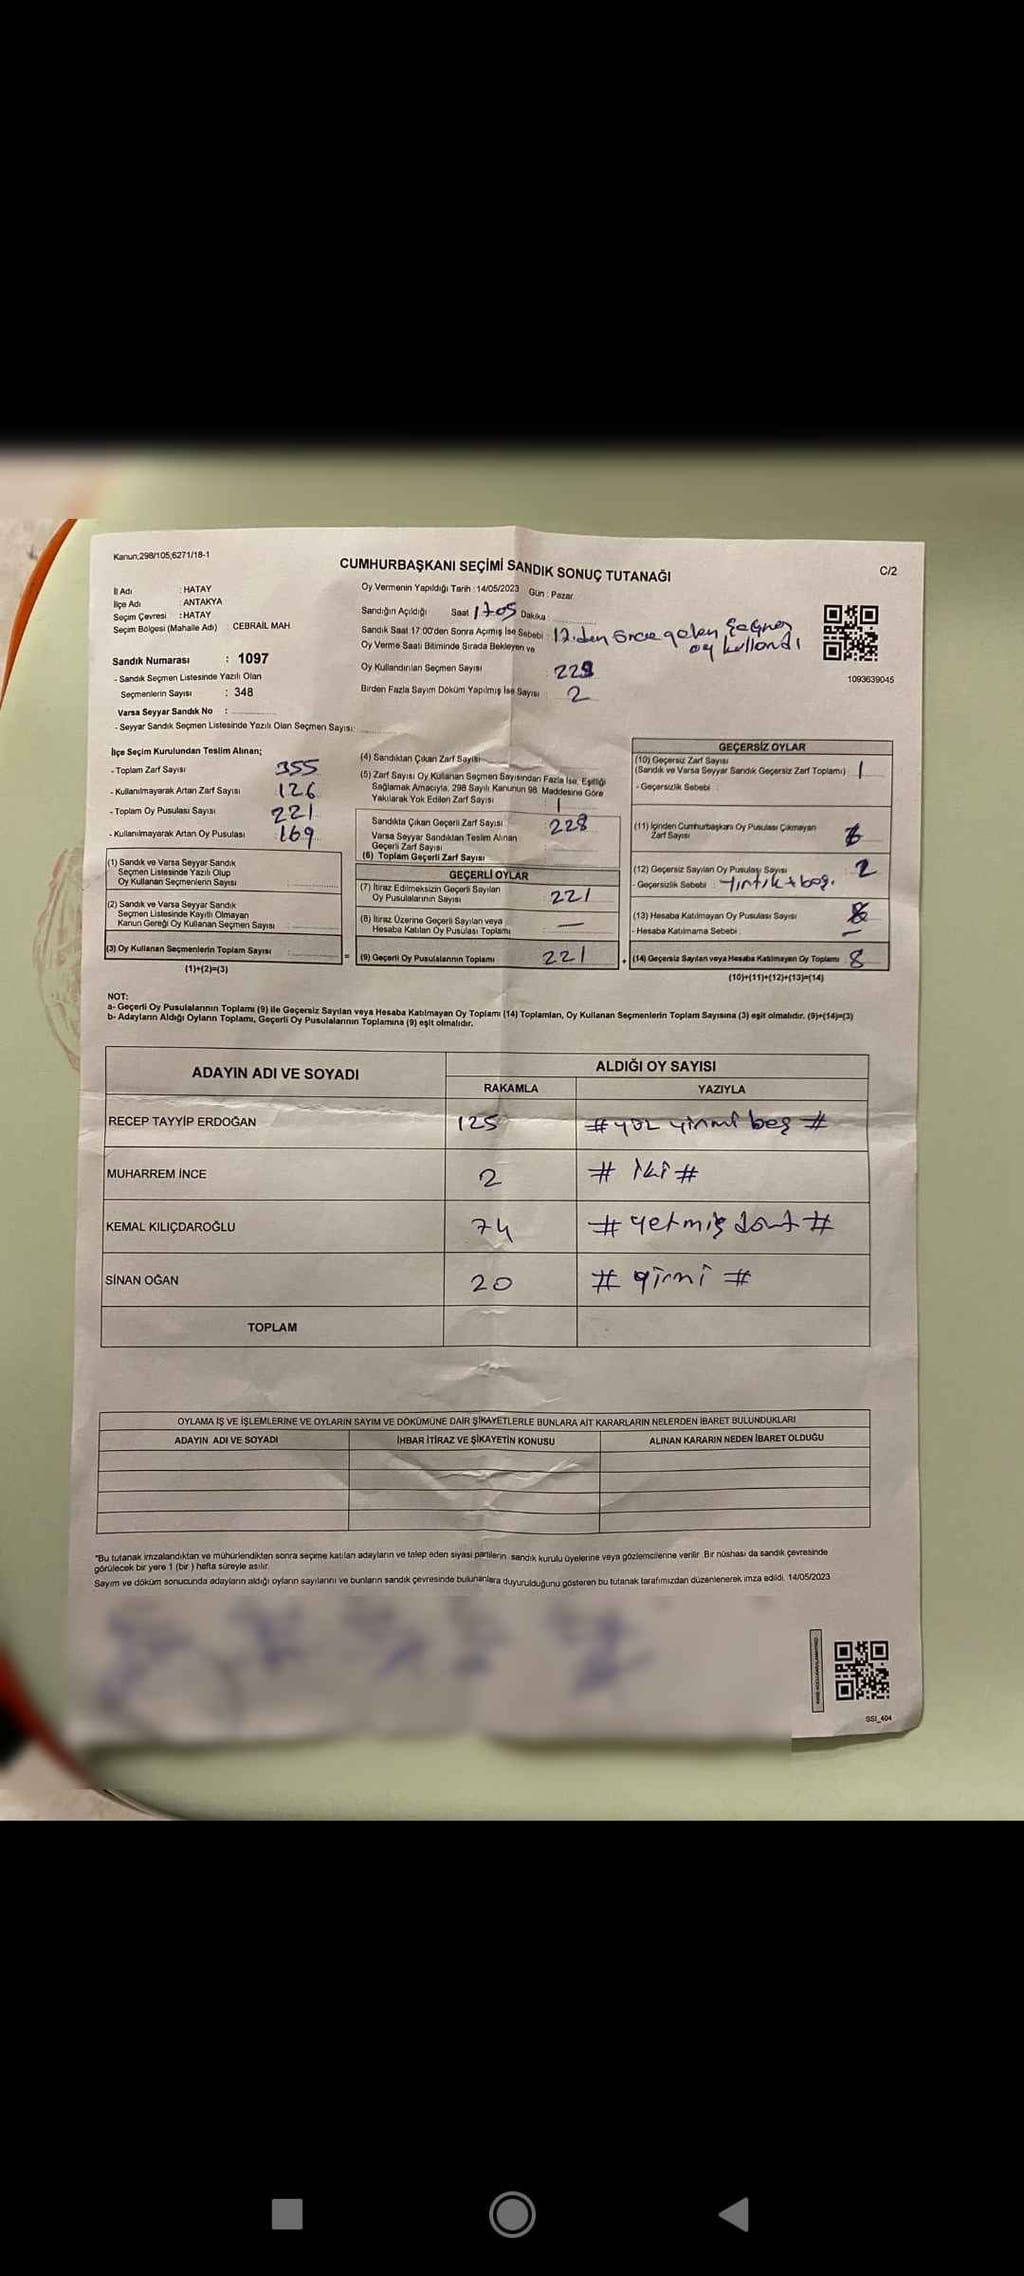 Kanun;298/105;6271/18-1
CUMHURBAŞKANI SEÇİMİ SANDIK SONUÇ TUTANAĞI
C/2
İl Adı : HATAY
İlçe Adı : ANTAKYA
Seçim Çevresi : HATAY
Seçim Bölgesi (Mahalle Adı) : CEBRAİL MAH.
Sandık Numarası : 1097
- Sandık Seçmen Listesinde Yazılı Olan
Seçmenlerin Sayısı : 348
Varsa Seyyar Sandık No :
- Seyyar Sandık Seçmen Listesinde Yazılı Olan Seçmen Sayısı:
Oy Vermenin Yapıldığı Tarih : 14/05/2023 Gün : Pazar
Sandığın Açıldığı Saat 1705 Dakika :
Sandık Saat 17:00'den Sonra Açılmış İse Sebebi : 17.den önce gelen seçmen
Oy Verme Saati Bitiminde Sırada Bekleyen ve oy kullandı
Oy Kullandırılan Seçmen Sayısı : 229
Birden Fazla Sayım Döküm Yapılmış İse Sayısı : 2
1093639045
İlçe Seçim Kurulundan Teslim Alınan;
- Toplam Zarf Sayısı : 355
- Kullanılmayarak Artan Zarf Sayısı : 126
- Toplam Oy Pusulası Sayısı : 221
- Kullanılmayarak Artan Oy Pusulası : 169
(1) Sandık ve Varsa Seyyar Sandık
Seçmen Listesinde Yazılı Olup
Oy Kullanan Seçmenlerin Sayısı :
(2) Sandık ve Varsa Seyyar Sandık
Seçmen Listesinde Kayıtlı Olmayan
Kanun Gereği Oy Kullanan Seçmen Sayısı :
(3) Oy Kullanan Seçmenlerin Toplam Sayısı :
(1)+(2)=(3)
(4) Sandıktan Çıkan Zarf Sayısı
(5) Zarf Sayısı Oy Kullanan Seçmen Sayısından Fazla İse, Eşitliği
Sağlamak Amacıyla, 298 Sayılı Kanunun 98. Maddesine Göre
Yakılarak Yok Edilen Zarf Sayısı : 1
Sandıkta Çıkan Geçerli Zarf Sayısı : 228
Varsa Seyyar Sandıktan Teslim Alınan
Geçerli Zarf Sayısı :
(6) Toplam Geçerli Zarf Sayısı :
GEÇERLİ OYLAR
(7) İtiraz Edilmeksizin Geçerli Sayılan
Oy Pusulalarının Sayısı : 221
(8) İtiraz Üzerine Geçerli Sayılan veya
Hesaba Katılan Oy Pusulası Toplamı : —
= (9) Geçerli Oy Pusulalarının Toplamı : 221 +
GEÇERSİZ OYLAR
(10) Geçersiz Zarf Sayısı
(Sandık ve Varsa Seyyar Sandık Geçersiz Zarf Toplamı) : 1
- Geçersizlik Sebebi :
(11) İçinden Cumhurbaşkanı Oy Pusulası Çıkmayan
Zarf Sayısı
(12) Geçersiz Sayılan Oy Pusulası Sayısı : 2
- Geçersizlik Sebebi : yırtık + boş.
(13) Hesaba Katılmayan Oy Pusulası Sayısı
- Hesaba Katılmama Sebebi : —
(14) Geçersiz Sayılan veya Hesaba Katılmayan Oy Toplamı : 8
(10)+(11)+(12)+(13)=(14)
NOT:
a- Geçerli Oy Pusulalarının Toplamı (9) ile Geçersiz Sayılan veya Hesaba Katılmayan Oy Toplamı (14) Toplamları, Oy Kullanan Seçmenlerin Toplam Sayısına (3) eşit olmalıdır. (9)+(14)=(3)
b- Adayların Aldığı Oyların Toplamı, Geçerli Oy Pusulalarının Toplamına (9) eşit olmalıdır.
ADAYIN ADI VE SOYADI
ALDIĞI OY SAYISI
RAKAMLA YAZIYLA
RECEP TAYYİP ERDOĞAN 125 # yüz yirmi beş #
MUHARREM İNCE 2 # iki #
KEMAL KILIÇDAROĞLU 74 # yetmiş dört #
SİNAN OĞAN 20 # yirmi #
TOPLAM
OYLAMA İŞ VE İŞLEMLERİNE VE OYLARIN SAYIM VE DÖKÜMÜNE DAİR ŞİKAYETLERLE BUNLARA AİT KARARLARIN NELERDEN İBARET BULUNDUKLARI
ADAYIN ADI VE SOYADI İHBAR İTİRAZ VE ŞİKAYETİN KONUSU ALINAN KARARIN NEDEN İBARET OLDUĞU
"Bu tutanak imzalandıktan ve mühürlendikten sonra seçime katılan adayların ve talep eden siyasi partilerin sandık kurulu üyelerine veya gözlemcilerine verilir. Bir nüshası da sandık çevresinde
görülecek bir yere 1 (bir ) hafta süreyle asılır.
Sayım ve döküm sonucunda adayların aldığı oyların sayılarını ve bunların sandık çevresinde bulunanlara duyurulduğunu gösteren bu tutanak tarafımızdan düzenlenerek imza edildi. 14/05/2023
SSI_404